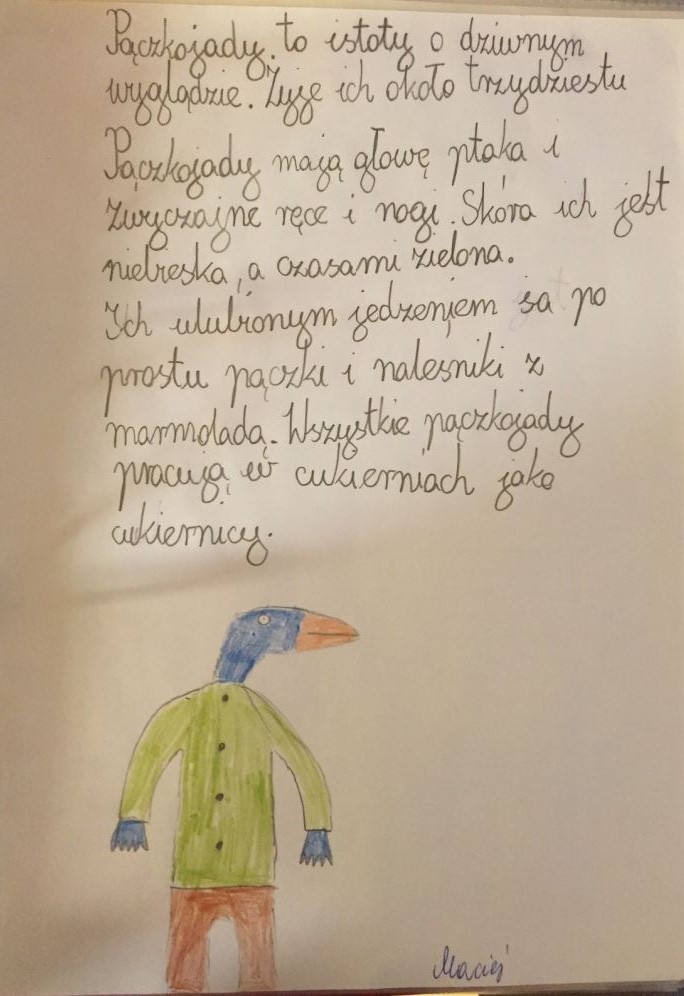 Pączkojady to istoty o dziwnym
wyglądzie. Żyje ich około trzydziestu
Pączkojady mają głowę ptaka i
zwyczajne ręce i nogi. Skóra ich jest
niebieska, a czasami zielona.
Ich ulubionym jedzeniem są po
prostu pączki i nalesniki z
marmoladą. Wszystkie pączkojady
pracują w cukierniach jako
cukiernicy.
Maciej